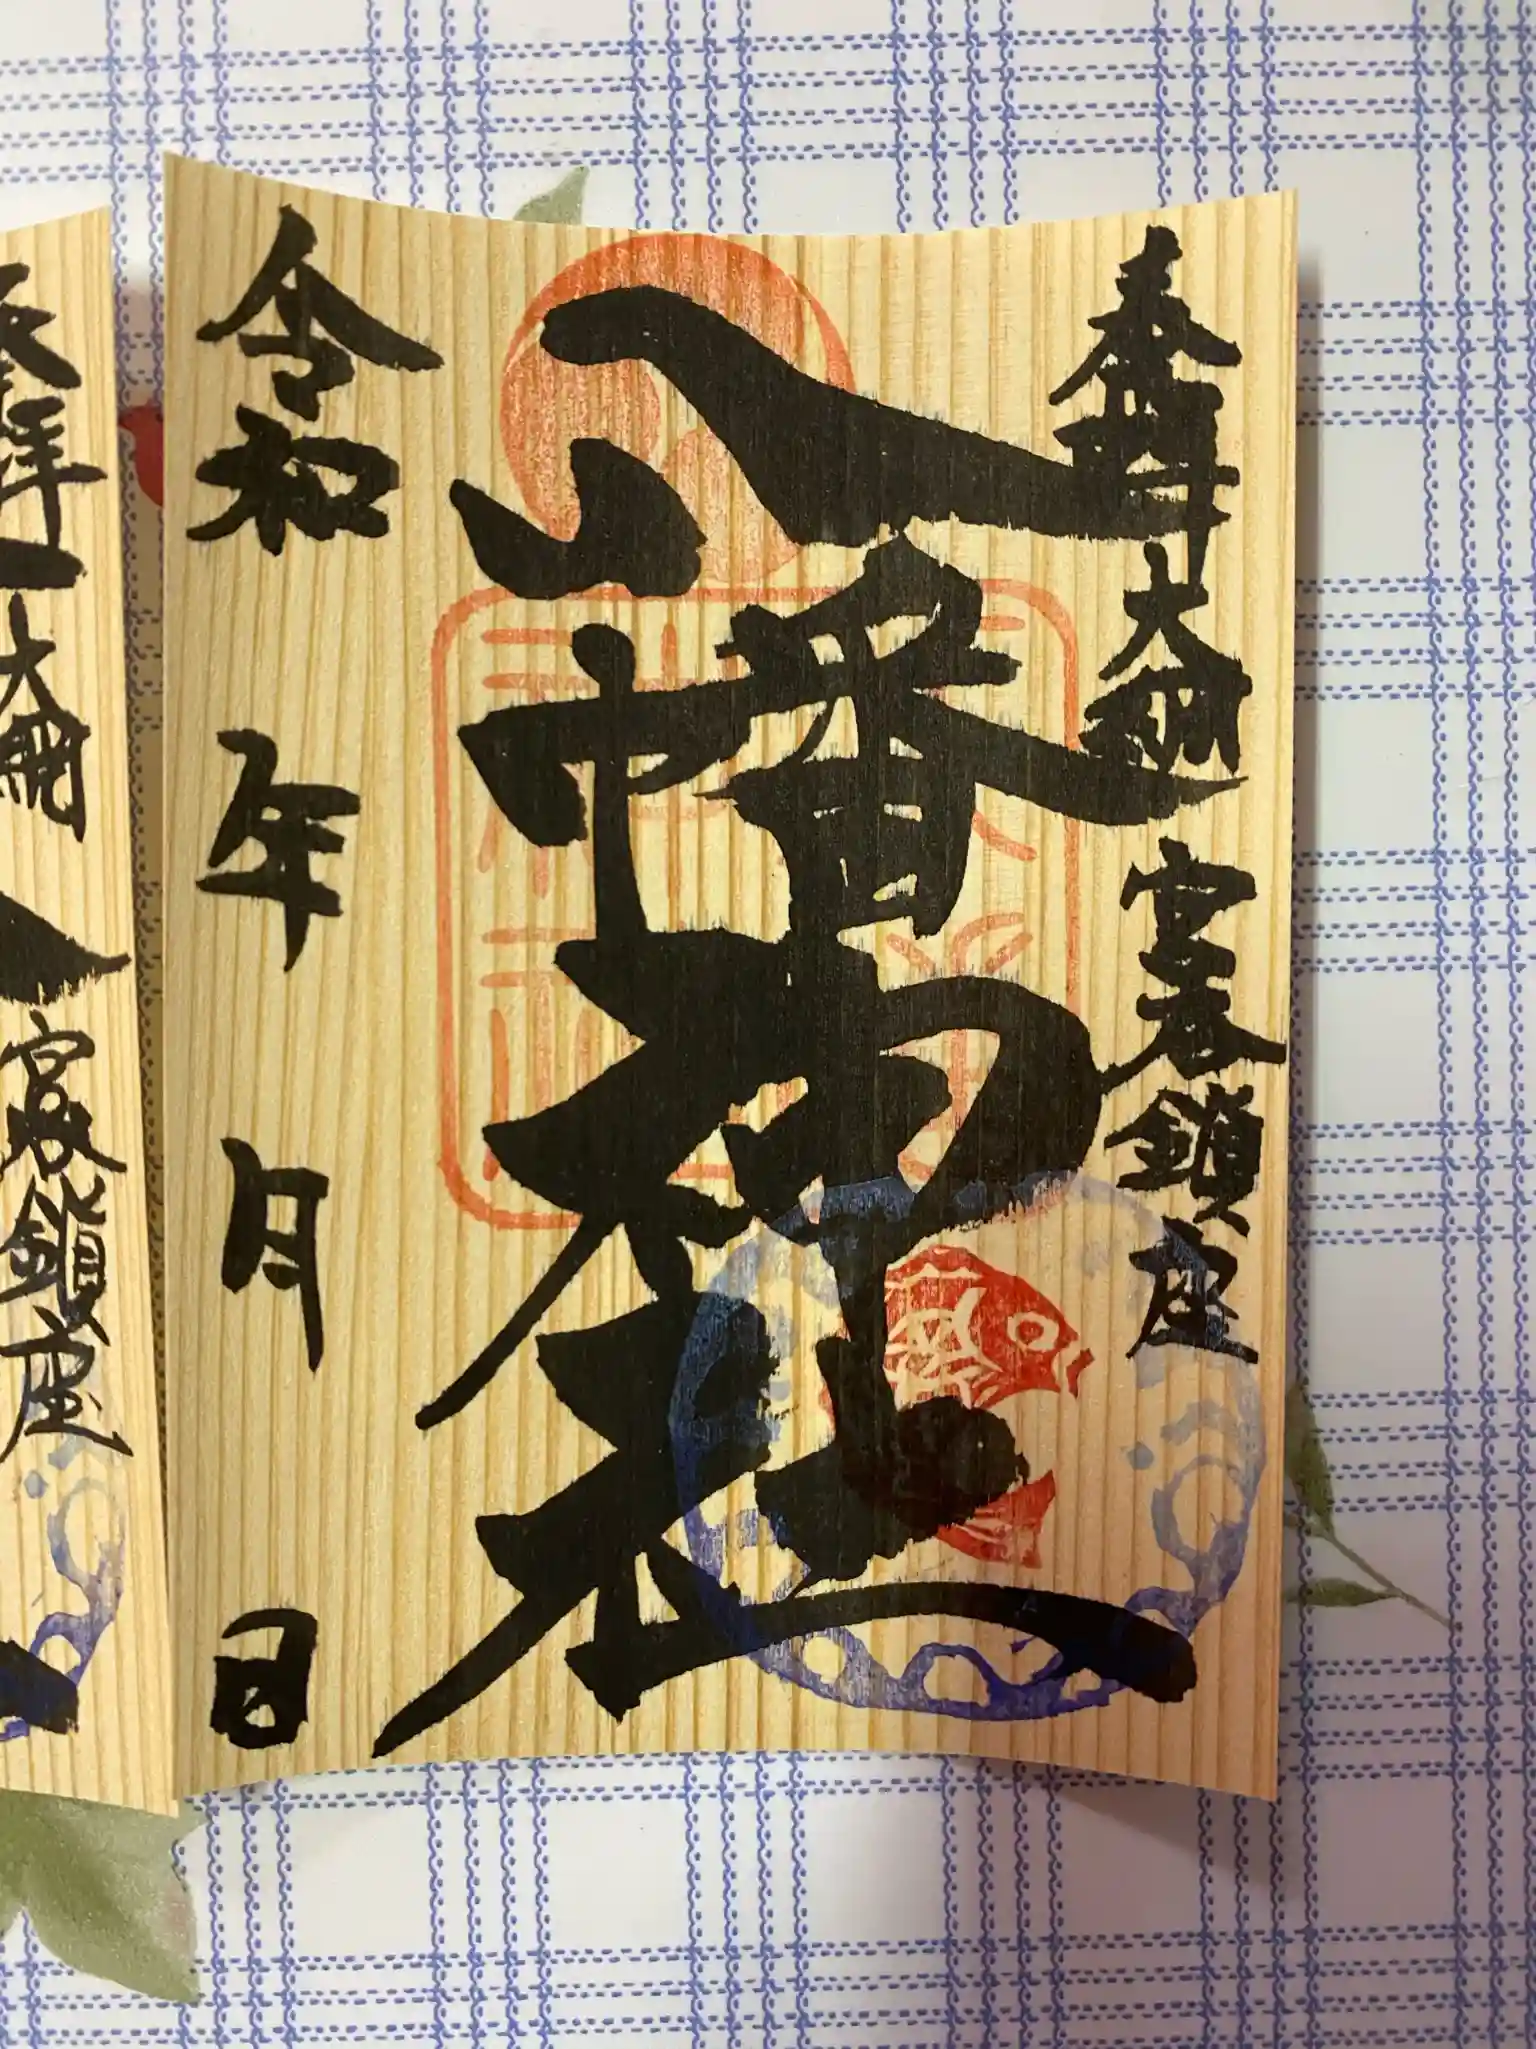 奉拝 大網 宮谷鎮座
八幡神社
令和 年 月 日
奉拝 大網 宮谷鎮座